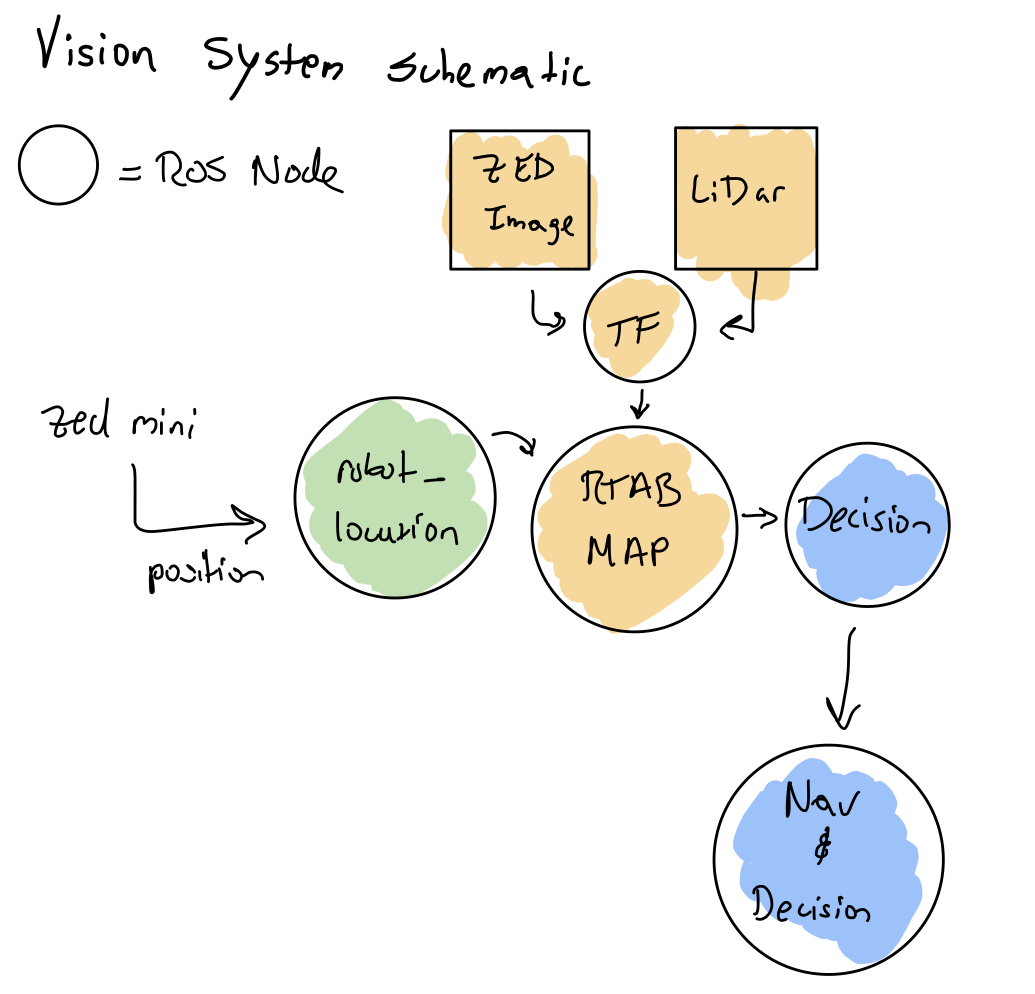 Vision System Schematic
= ROS Node
ZED
Image
LiDar
TF
zed mini
position
robot_
location
RTAB
MAP
Decision
Nav
&
Decision